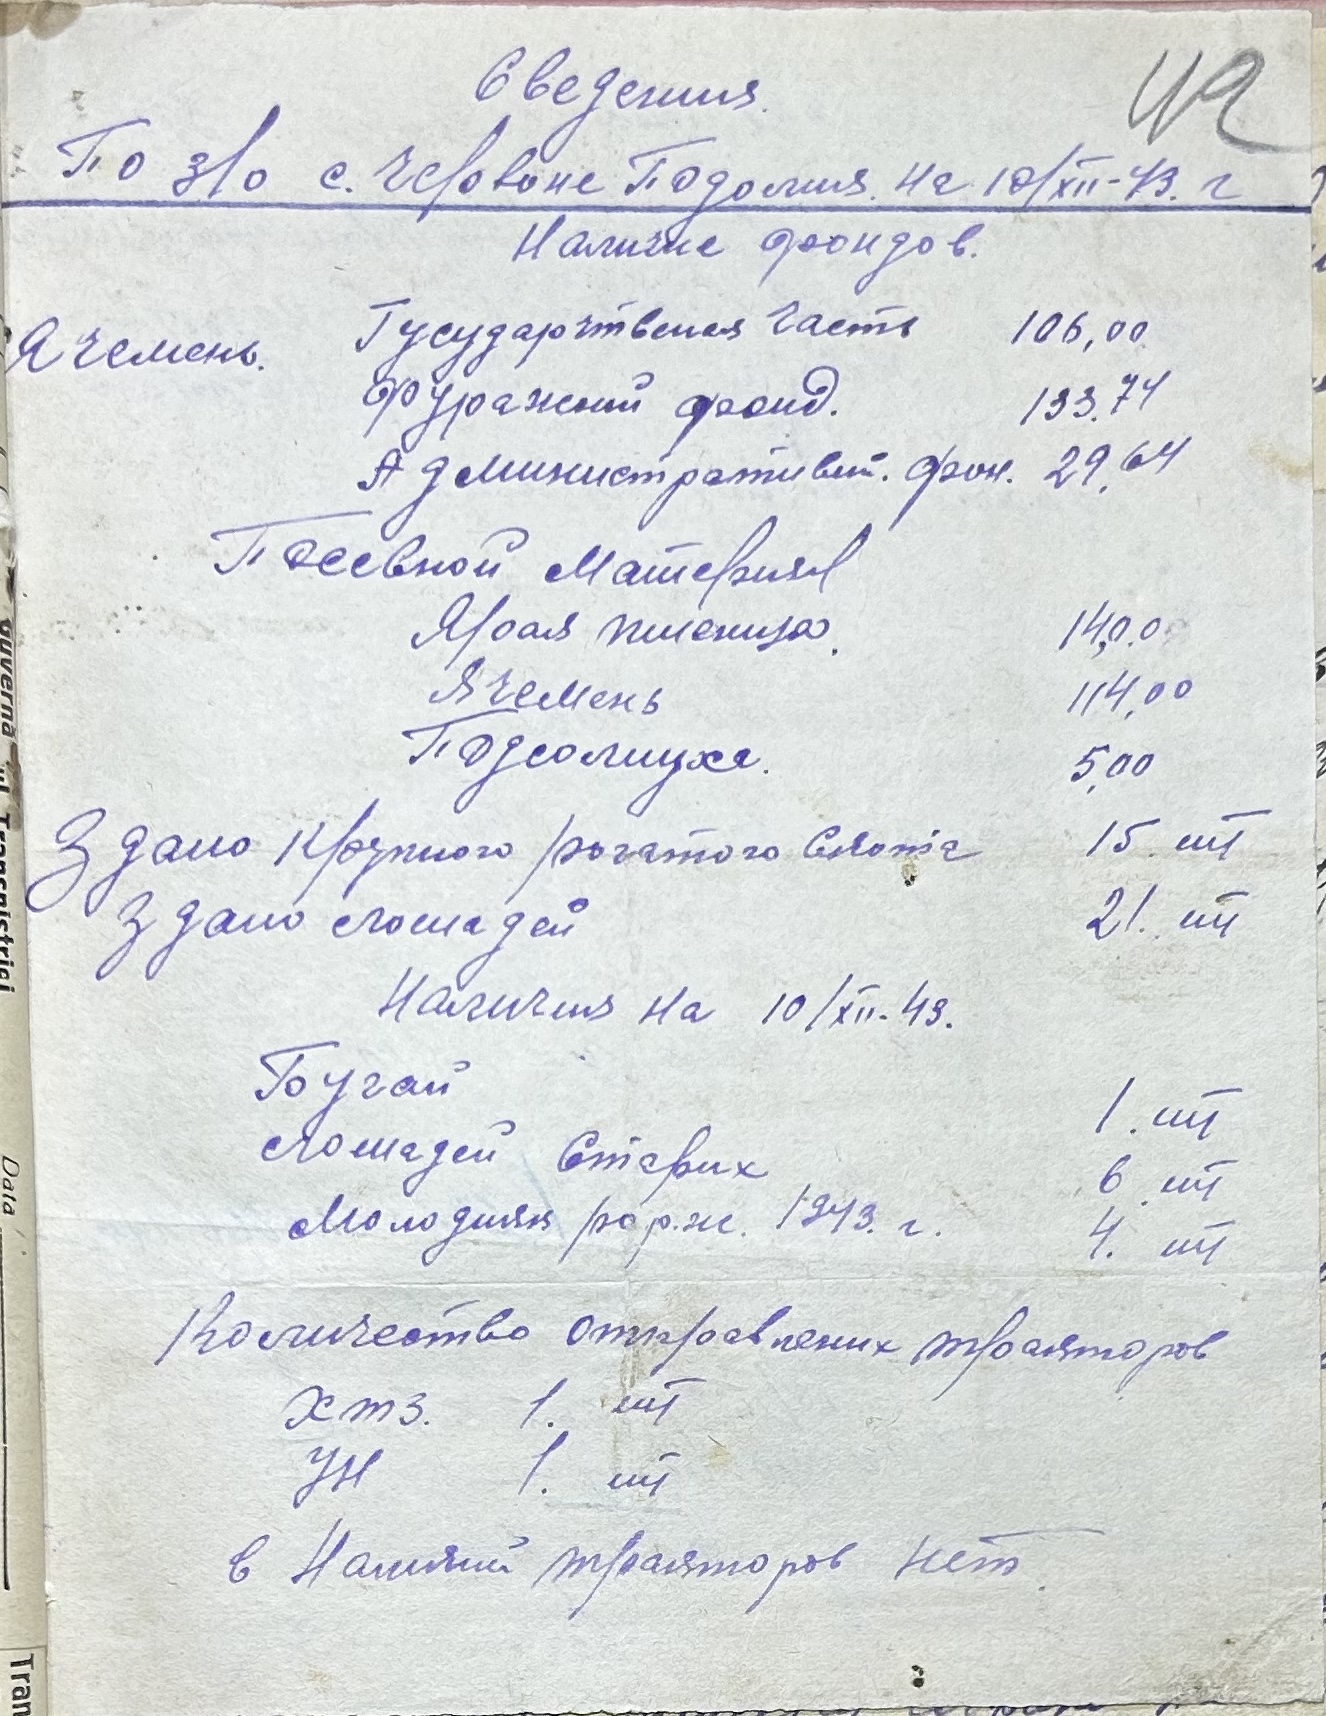 Сведения
42
По зло с. Червоне Подолия. на 10/XII-43. г
Наличие фондов.
Ячемень.
Гусударчтвеная часть 106,00
Фуражний фонд. 133.74
Административн. фон. 29,64
Посевной Материял
Ярвая пшеница. 14,00
Ячемень 114,00
Подсолнуха. 5,00
Здано Крупного рогатого Скота 15 шт
Здано лошадей 21. шт
Наличия на 10/XII-43.
Бугай 1. шт
лошадей Старих 6 шт
Молодняк рорж. 1943. г. 4. шт
Количество отправлених тракторов
ХТЗ. 1. шт
УН 1. шт
в Наличий тракторов нет.
guvernă
Transnistriei
Data
Tran